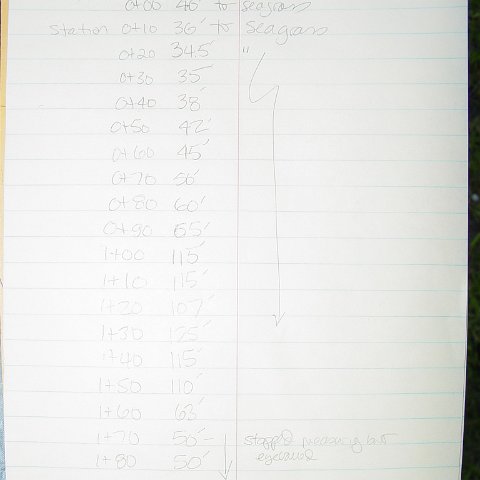 0+00 40' to seagrass
Station 0+10 36' to seagrass
0+20 34.5' "
0+30 35'
0+40 38'
0+50 42'
0+60 45'
0+70 50'
0+80 60'
0+90 65'
1+00 115'
1+10 115'
1+20 107'
1+30 125'
1+40 115'
1+50 110'
1+60 63'
1+70 50' stopped measuring but
1+80 50' eyeballed